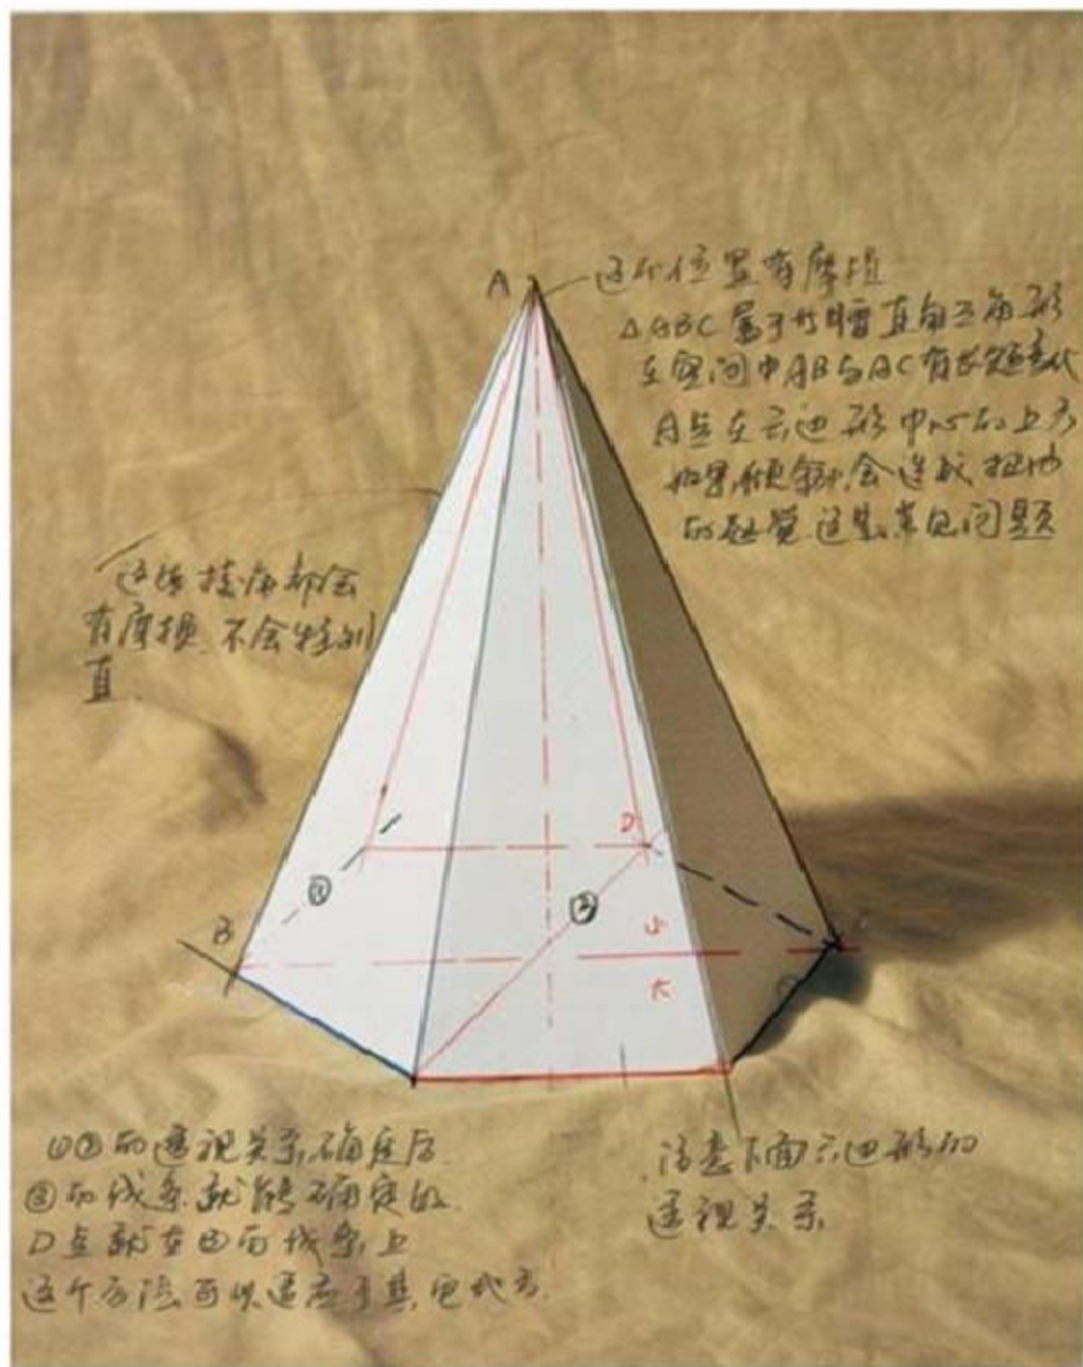 A
这个位置有磨损
△ABC属于等腰直角三角形
在空间中AB与AC有长短变化
A点在六边形中心的上方
如果倾斜,会造成扭曲
的感觉.这些常见问题
这块棱角都会
有磨损.不会特别
直.
D
①
②
B
小
大
①②的透视关系确定后
③的线条就能确定的.
D点就在③的线条上
这个方法可以适应于其它地方.
注意下面六边形的
透视关系